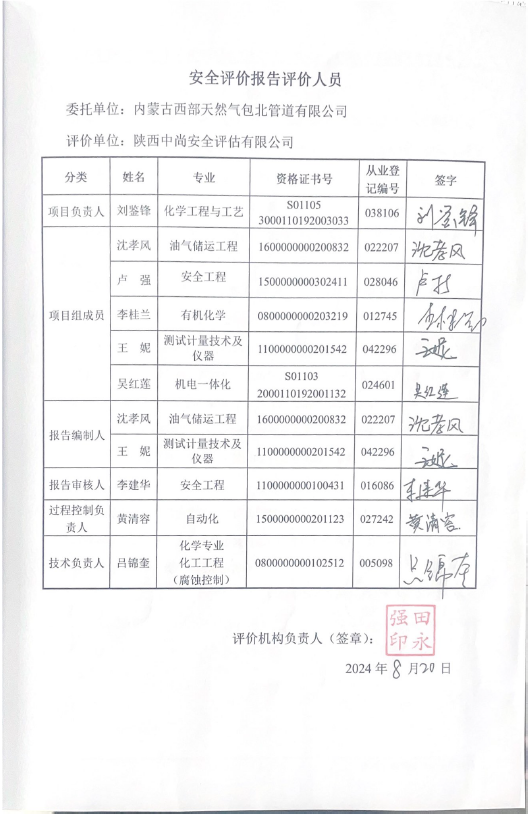 安全评价报告评价人员
委托单位：内蒙古西部天然气包北管道有限公司
评价单位：陕西中尚安全评估有限公司
分类 姓名 专业 资格证书号 从业登记编号 签字
项目负责人 刘鉴锋 化学工程与工艺 S01105 3000110192003033 038106 刘鉴锋
项目组成员 沈孝风 油气储运工程 1600000000200832 022207 沈孝风
卢 强 安全工程 1500000000302411 028046 卢
李桂兰 有机化学 0800000000203219 012745
王 妮 测试计量技术及仪器 1100000000201542 042296 王妮
吴红莲 机电一体化 S01103 2000110192001132 024601 吴红莲
报告编制人 沈孝风 油气储运工程 1600000000200832 022207 沈孝风
王 妮 测试计量技术及仪器 1100000000201542 042296 王妮
报告审核人 李建华 安全工程 1100000000100431 016086 李建华
过程控制负责人 黄清容 自动化 1500000000201123 027242 黄清容
技术负责人 吕锦奎 化学专业 化工工程 （腐蚀控制） 0800000000102512 005098 吕锦奎
评价机构负责人（签章）：
田永强印
2024 年 8 月 20 日